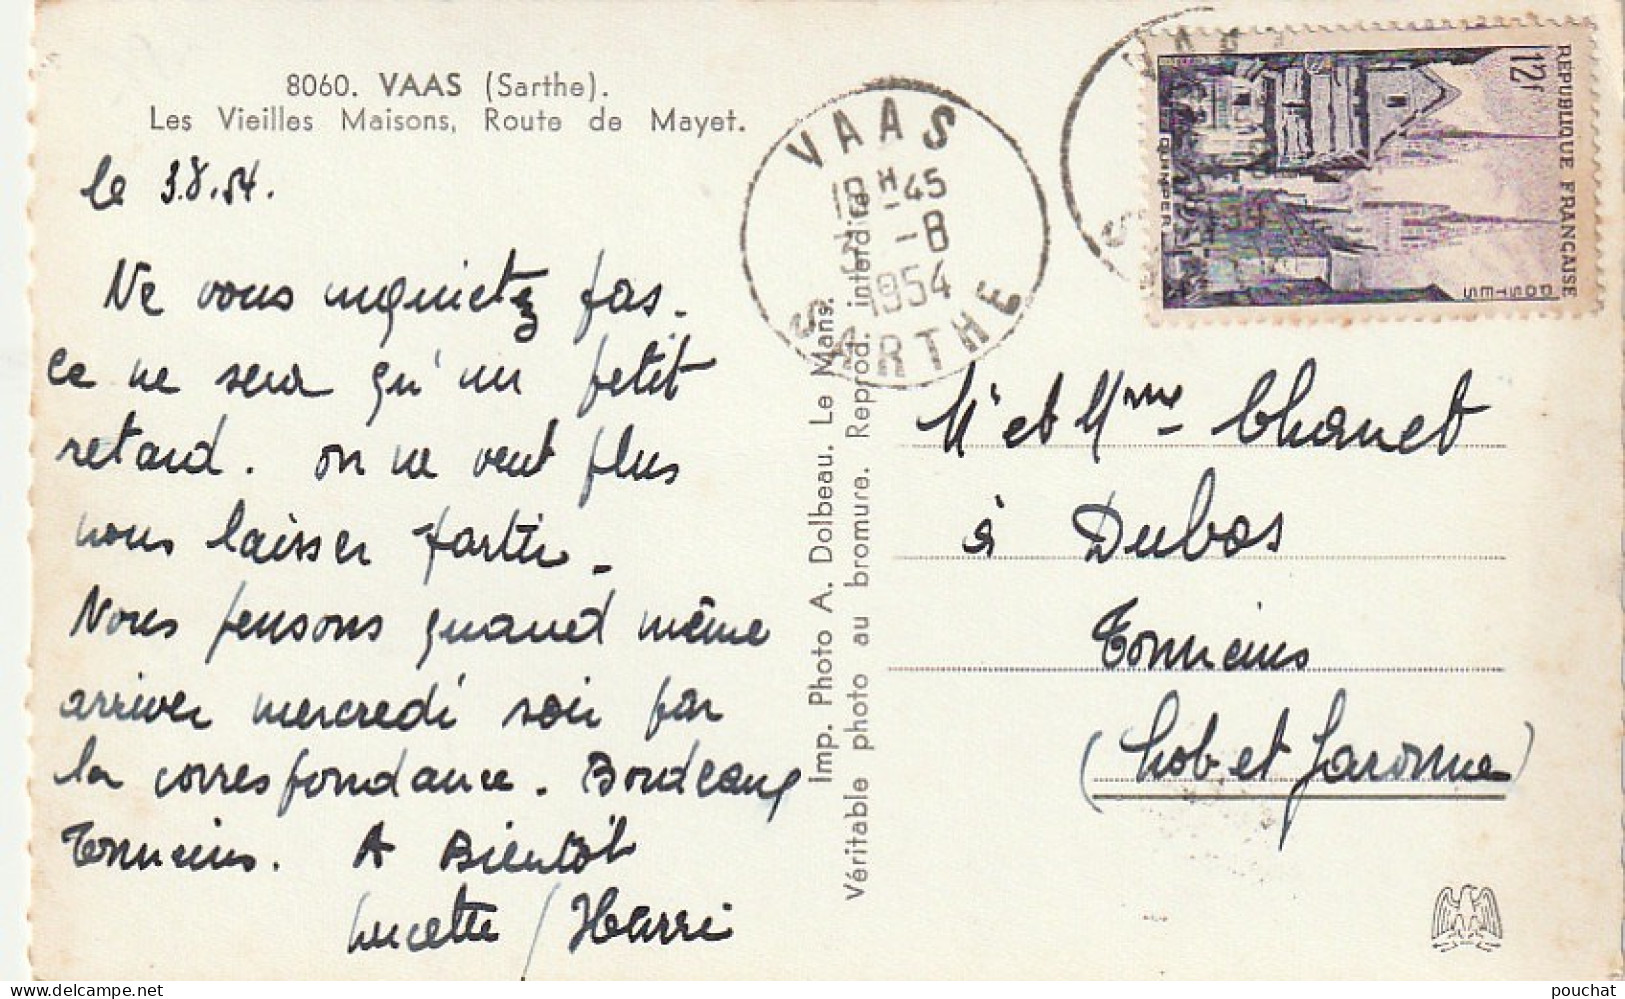 8060. VAAS (Sarthe).
Les Vieilles Maisons, Route de Mayet.
le 3.8.54.
Ne vous inquietez pas.
ce ne sera qu'un petit
retard. on ne veut plus
nous laisser partir.
Nous pensons quand même
arriver mercredi soir par
la correspondance. Bordeaux
Tonneins. A Bientôt
Lucette / Harri
Imp. Photo A. Dolbeau. Le Mans.
Véritable photo au bromure. Reprod. interdite.
VAAS
18H-45
3-8
1954
SARTHE
REPUBLIQUE FRANÇAISE
12f
QUIMPER
POSTES
Mr et Mme Chanet
à Dubos
Tonneins
(Lot et Garonne)
pouchat